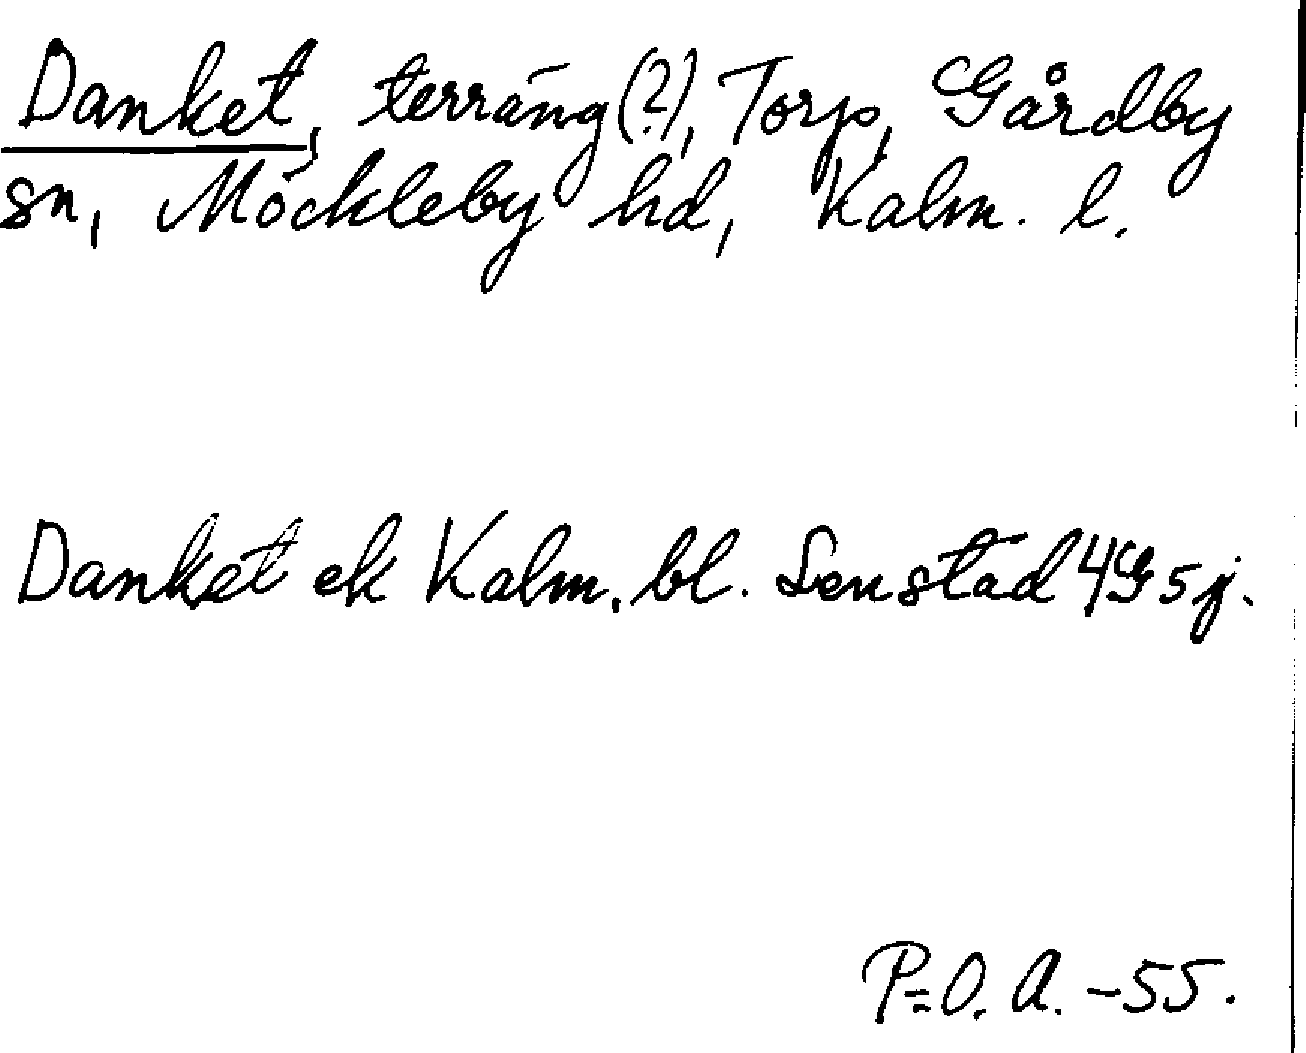 Danket, terräng(?), Torp, Gårdby
sn, Möckleby hd, Kalm. l.
Danket ek Kalm. bl. Lenstad 4G5j.
P-O. A. -55.